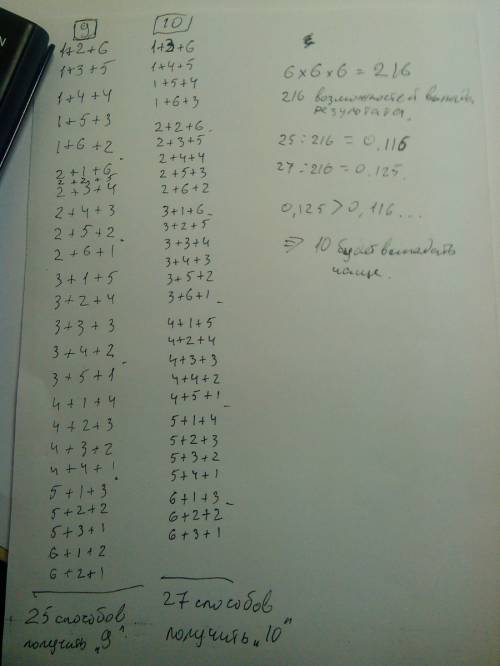 9
1+2+6
1+3+5
1+4+4
1+5+3
1+6+2
2+1+6
2+2+5
2+3+4
2+4+3
2+5+2
2+6+1
3+1+5
3+2+4
3+3+3
3+4+2
3+5+1
4+1+4
4+2+3
4+3+2
4+4+1
5+1+3
5+2+2
5+3+1
6+1+2
6+2+1
25 способов
получить „9"
10
1+3+6
1+4+5
1+5+4
1+6+3
2+2+6
2+3+5
2+4+4
2+5+3
2+6+2
3+1+6
3+2+5
3+3+4
3+4+3
3+5+2
3+6+1
4+1+5
4+2+4
4+3+3
4+4+2
4+5+1
5+1+4
5+2+3
5+3+2
5+4+1
6+1+3
6+2+2
6+3+1
27 способов
получить „10"
6×6×6 = 216
216 возможностей
результата.
25:216 = 0,116
27:216 = 0,125.
0,125 > 0,116...
⇒ 10 будет выпадать
чаще.